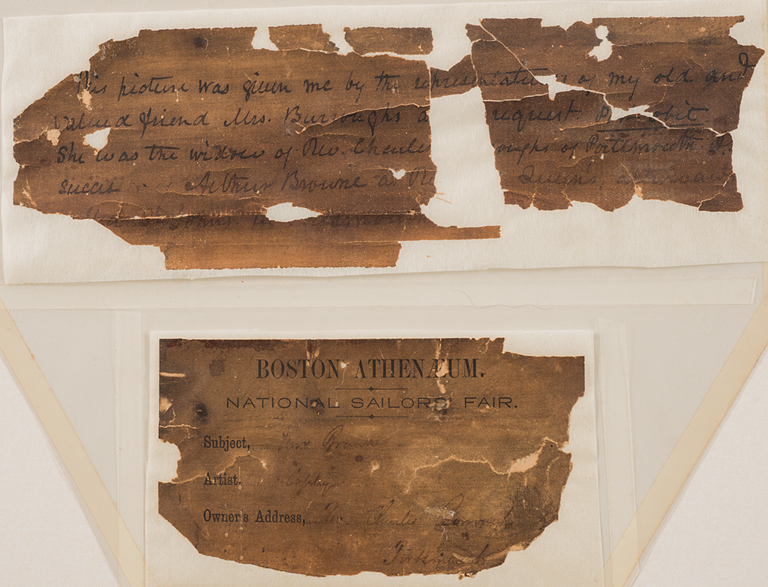 This picture was given me by the representatives of my old and
valued friend Mrs. Burroughs a request.
She was the widow of Rev. Charles oughs of Portsmouth
succes Arthur Browne as Re Queens,
St Johns
BOSTON ATHENÆUM.
NATIONAL SAILORS' FAIR.
Subject, Mrs Browne
Artist. Copley
Owner's Address, Rev. Charles Burroughs